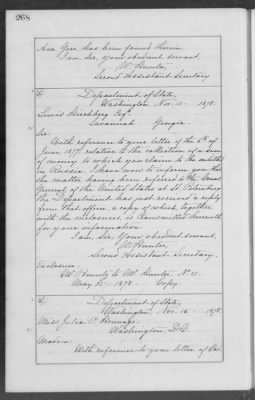 268
Asa Gyer has been found therein
I am, Sir, your obedient servant,
W. Hunter,
Second Assistant Secretary
Department of State,
Washington, Nov. 15 - 1878.
Lewis Hirshberg Esqr.
Savannah Georgia.
Sir:
With reference to your letter of the 5th of
June, 1877 relative to the collection of a sum
of money to which you claim to be entitled
in Russia, I have now to inform you that
the matter having been referred to the Consul
General of the United States at St. Petersburg
the Department has just received a reply
from that office, a copy of which together
with the enclosures, is transmitted herewith
for your information.
I am, Sir, Your obedient servant,
W. Hunter,
Second Assistant Secretary.
Enclosure.
to Mr. Hunter, No.
May 15 - 1878. Copy.
Department of State,
Washington, Nov. 16 - 1878.
Miss Julia P.
Washington, D.C.
Madam:
With reference to your letter of